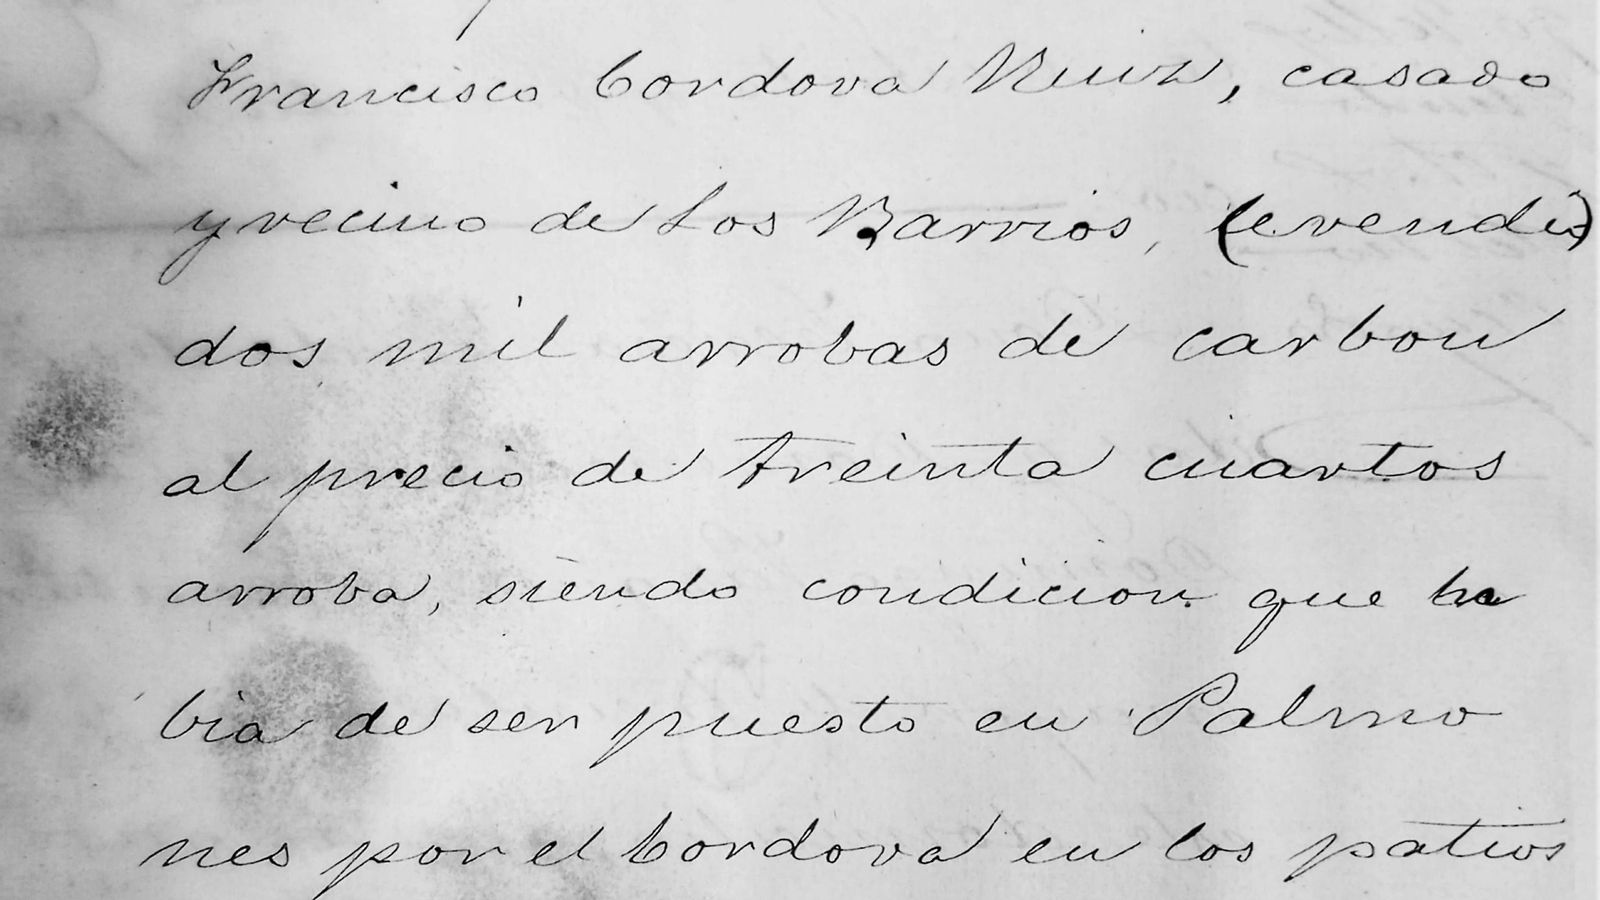 Francisco Cordova Ruiz, casado
y vecino de Los Barrios, (le vendió)
dos mil arrobas de carbon
al precio de treinta cuartos
arroba, siendo condicion que ha
bia de ser puesto en Palmo
nes por el Cordova en los patios